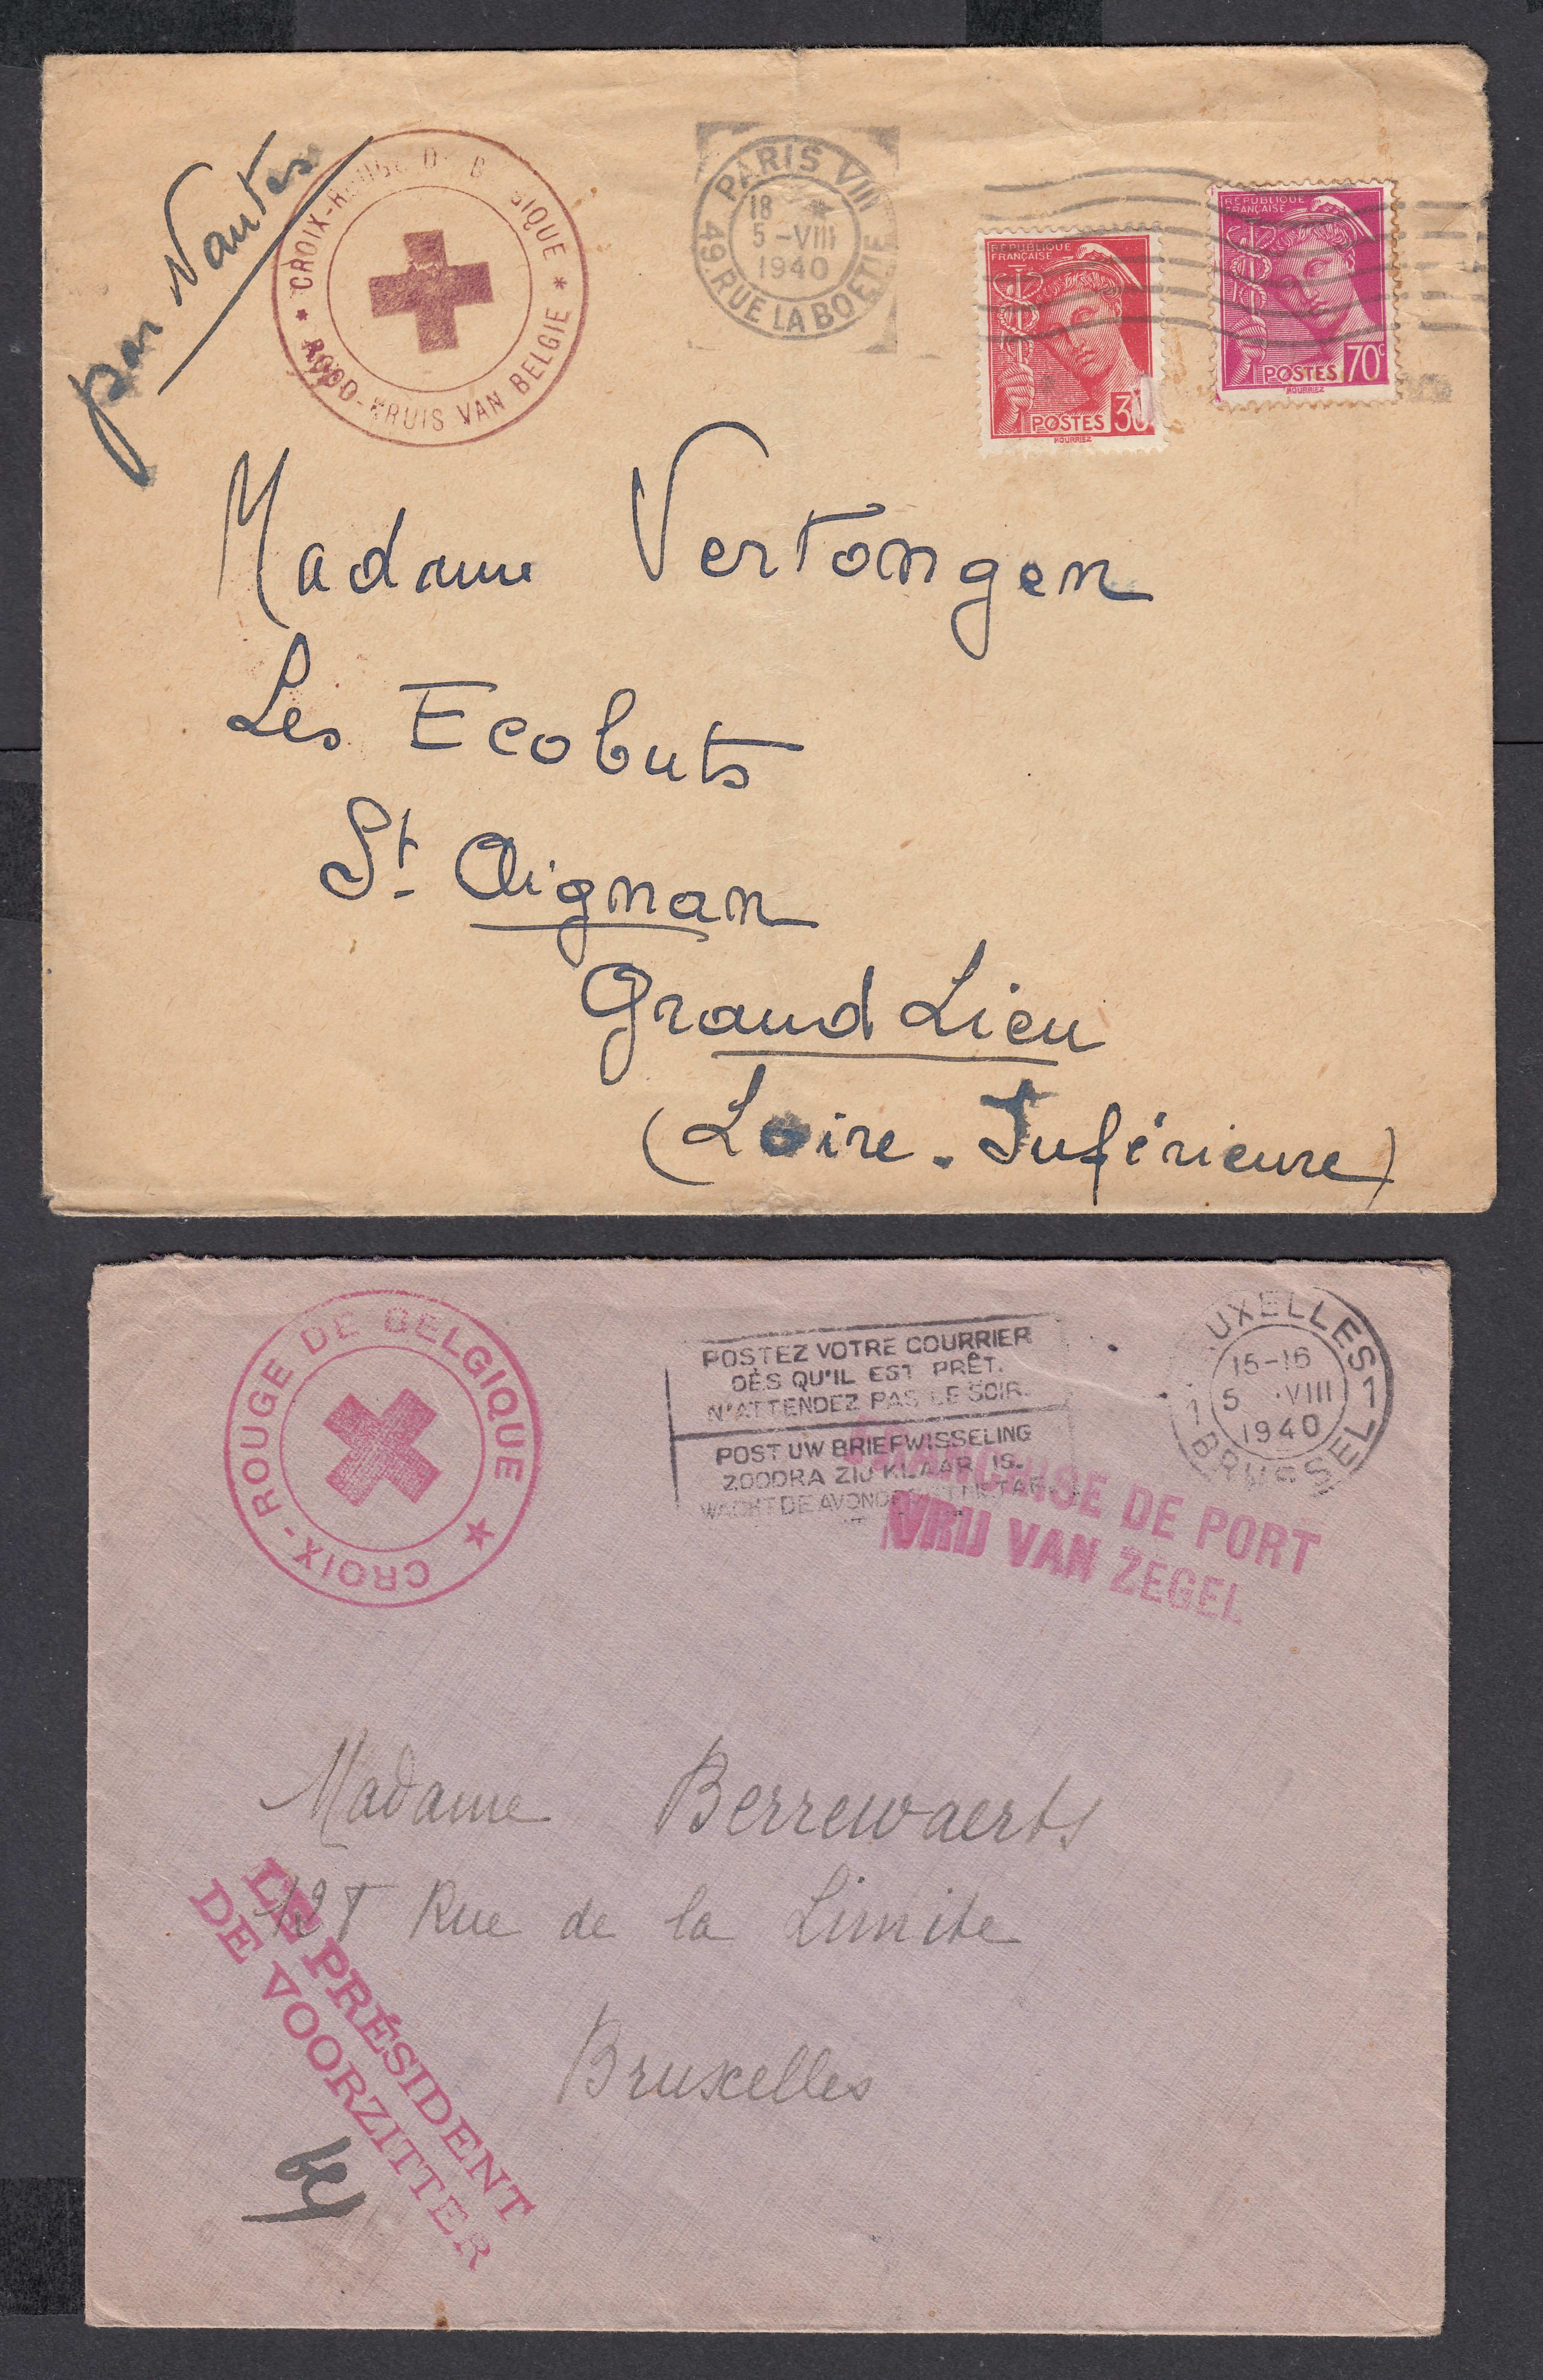 par Nantes
* CROIX-ROUGE DE BELGIQUE *
ROOD-KRUIS VAN BELGIE
PARIS VIII
18 *
5-VIII
1940
49. RUE LA BOETIE
REPUBLIQUE
FRANÇAISE
POSTES 30
MOURRIEZ
REPUBLIQUE
FRANÇAISE
POSTES 70c
MOURRIEZ
Madame Vertongen
Les Ecobuts
St. Aignan
Grand Lieu
(Loire-Inférieure)
CROIX-ROUGE DE BELGIQUE ★
POSTEZ VOTRE COURRIER
DÈS QU'IL EST PRÊT.
N'ATTENDEZ PAS LE SOIR.
POST UW BRIEFWISSELING
ZOODRA ZIJ KLAAR IS.
WACHT DE AVOND NIET AF.
BRUXELLES 1
15-16
5 VIII
1940
1 BRUSSEL
FRANCHISE DE PORT
VRIJ VAN ZEGEL
Madame Berrewaerts
Rue de la Limite
Bruxelles
LE PRÉSIDENT
DE VOORZITTER